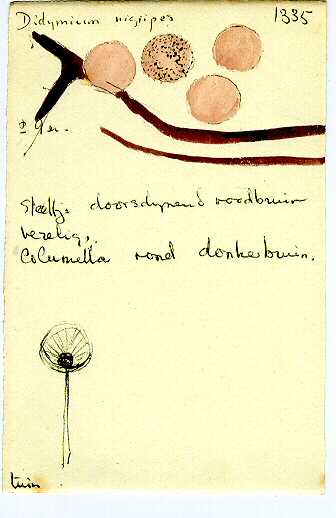 Didymium nigripes 1335
Steeltje doorschijnend roodbruin
vezelig,
Columella rond donkerbruin.
tuin